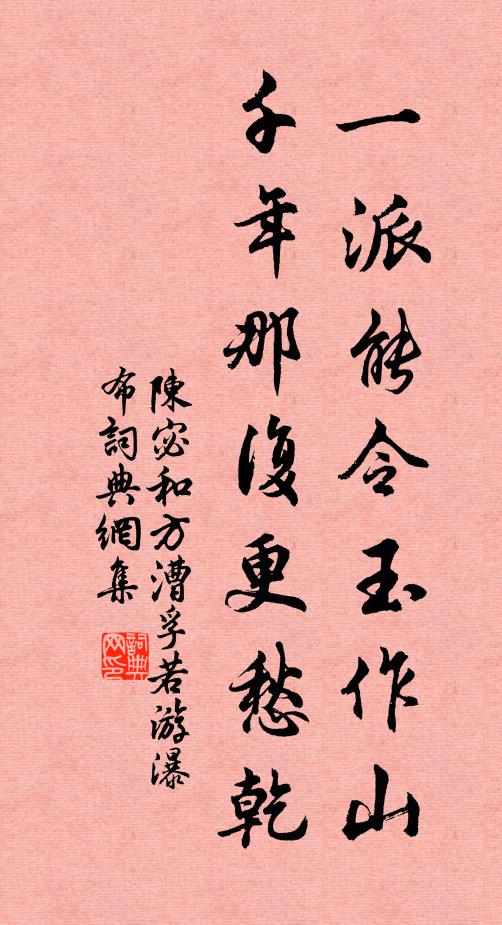 一派能令玉作山
千年那復更愁乾
陳宓和方漕孚若游瀑
布詞典網集
詞典
网印